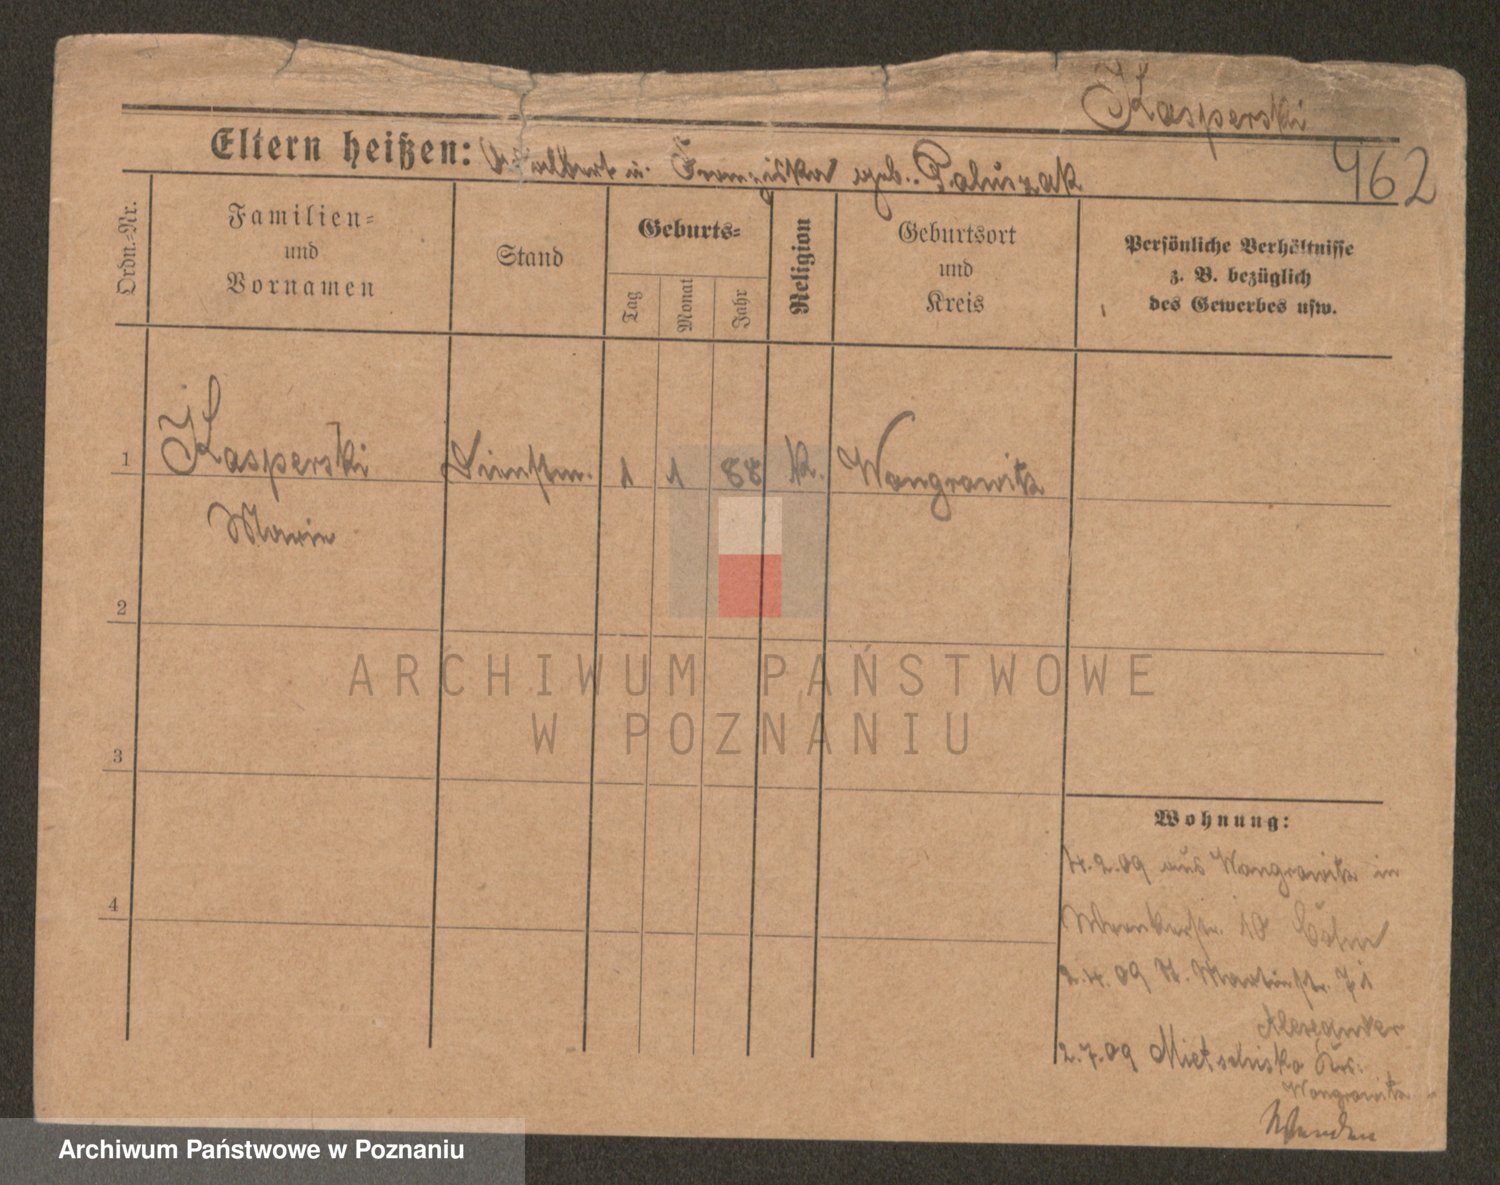 Kasperski
462
Eltern heißen: Adalbert u. Franziska geb. Paluszak
Ordn.-Nr.
Familien-
und
Vornamen
Stand
Geburts-
Tag
Monat
Jahr
Religion
Geburtsort
und
Kreis
Persönliche Verhältnisse
z. B. bezüglich
des Gewerbes usw.
1
Kasperski Dienstm. 1 1 88 k. Wongrowitz
Marie
2
3
4
Wohnung:
14.2.09 aus Wongrowitz in
10
2.4.09 St. Martinstr. 71
Alexander
2.7.09 Mietschisko Krs.
Wongrowitz
ARCHIWUM PAŃSTWOWE
W POZNANIU
Archiwum Państwowe w Poznaniu